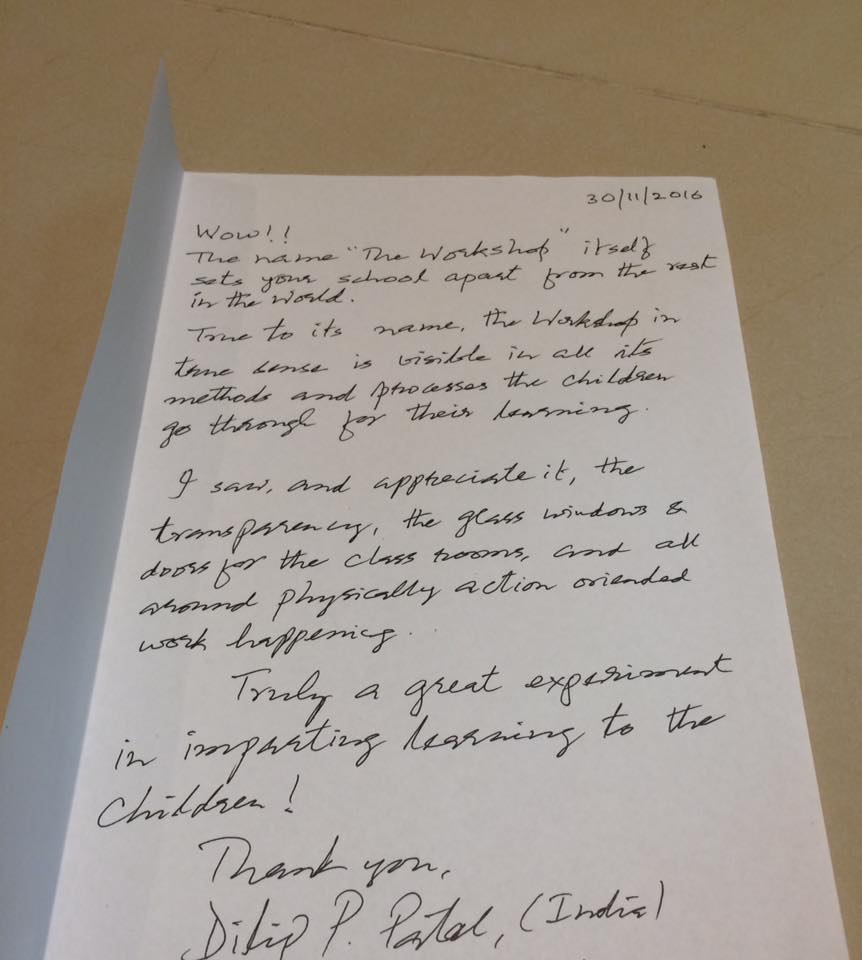 30/11/2016
Wow!!
The name "The Workshop" itself
sets your school apart from the rest
in the World.
True to its name, the Workshop in
true sense is visible in all its
methods and processes the children
go through for their learning.
I saw, and appreciate it, the
transparency, the glass windows &
doors for the class rooms, and all
around physically action oriended
work happening.
Truly a great experiment
in imparting learning to the
children!
Thank you,
Dilip P. Patel, (India)